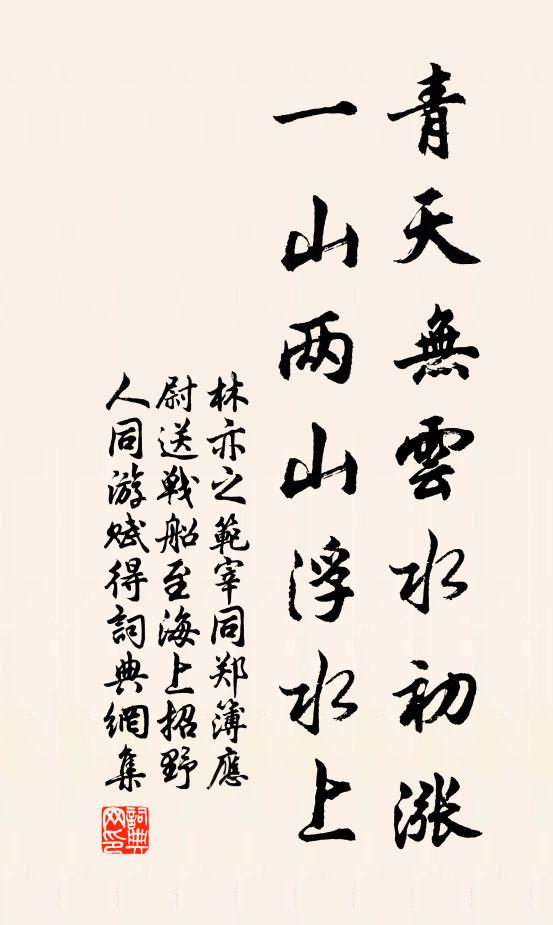 青天無雲水初漲
一山两山浮水上
林亦之範宰同郑簿應
尉送戰船至海上招野
人同游赋得詞典網集
詞典网印